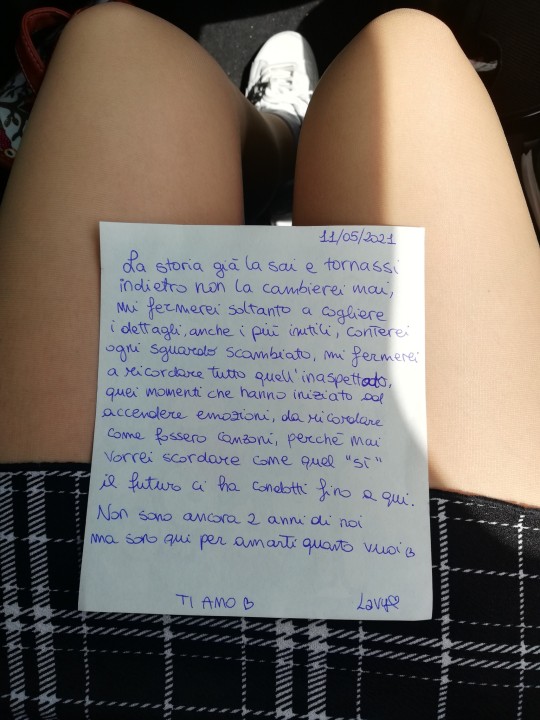 11/05/2021
La storia già la sai e tornassi
indietro non la cambierei mai,
mi fermerei soltanto a cogliere
i dettagli, anche i più inutili, conterei
ogni sguardo scambiato, mi fermerei
a ricordare tutto quell'inaspettato,
quei momenti che hanno iniziato ad
accendere emozioni, da ricordare
come fossero canzoni, perchè mai
vorrei scordare come quel "sì"
il futuro ci ha condotti fino a qui.
Non sono ancora 2 anni di noi
ma sono qui per amarti quanto vuoi ♡
TI AMO ♡ Lavy♡